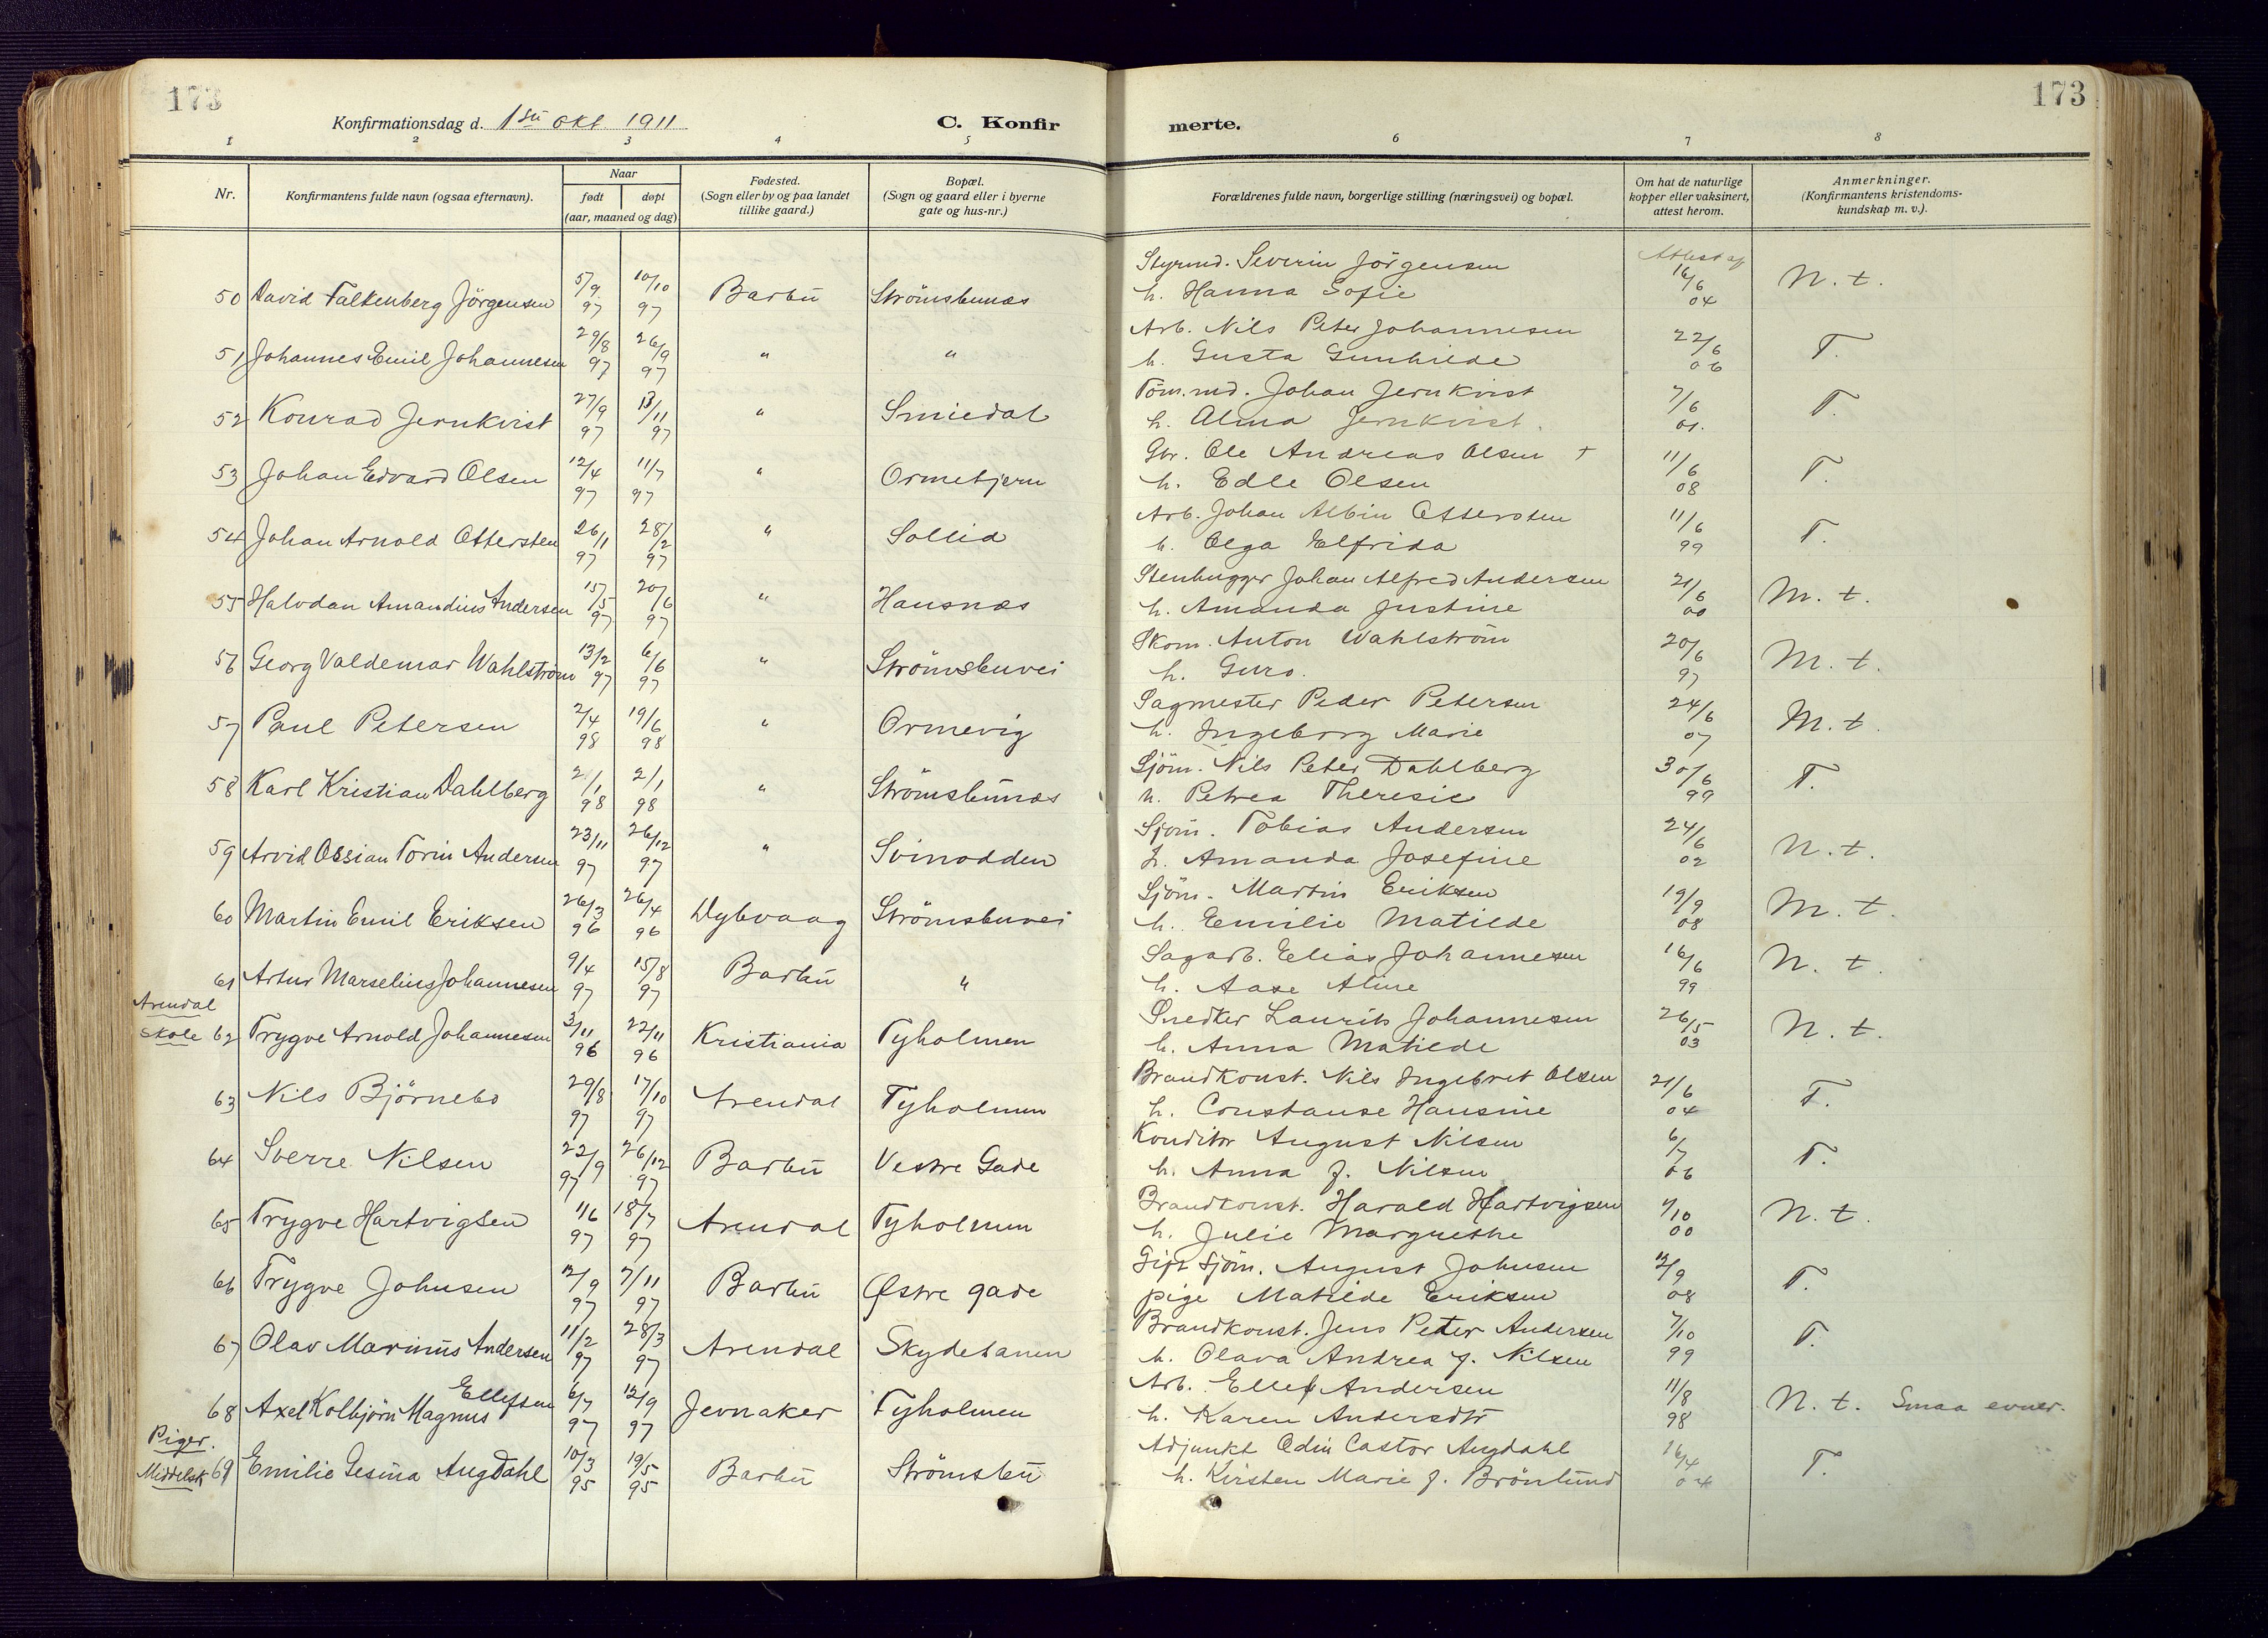 173
173
Konfirmationsdag d. 1ste okt 1911
C. Konfir
merte.
1 2 3 4 5 6 7 8
Nr.
Konfirmantens fulde navn (ogsaa efternavn).
Naar
født døpt
(aar, maaned og dag)
Fødested.
(Sogn eller by og paa landet
tillike gaard.)
Bopæl.
(Sogn og gaard eller i byerne
gate og hus-nr.)
Forældrenes fulde navn, borgerlige stilling (næringsvei) og bopæl.
Om hat de naturlige
kopper eller vaksinert,
attest herom.
Anmerkninger.
(Konfirmantens kristendoms-
kundskap m. v.).
Attest af
50 David Falkenberg Jörgensen 5/9 97 10/10 97 Barbu Strömsbunæs Styrmd. Severin Jörgensen 16/6 04 N. t.
h. Hanna Sofie
51 Johannes Emil Johannesen 29/8 97 26/9 97 " " Arb. Nils Peter Johannesen 22/6 06 T.
h. Gusta Gunhilde
52 Konrad Jernkvist 27/9 97 13/11 97 " Smiedal Töm.md. Johan Jernkvist 7/6 01. T.
h. Alma Jernkvist.
53 Johan Edvard Olsen 12/4 97 11/7 97 " Ormetjern Gbr. Ole Andreas Olsen + 11/6 08 T.
h. Edle Olsen
54 Johan Arnold Ottersten 26/1 97 28/2 97 " Sollid Arb. Johan Albin Ottersten 11/6 99 T.
h. Olga Elfrida
55 Halvdan Amandius Andersen 15/5 97 20/6 97 " Hansnæs Stenhugger Johan Alfred Andersen 21/6 00 M. t.
h. Amanda Justine
56 Georg Valdemar Wahlström 13/2 97 6/6 97 " Strömsbuvei Skom. Anton Wahlström 20/6 97 M. t.
h. Guro.
57 Paul Petersen 2/4 98 19/6 98 " Ormevig Sagmester Peder Petersen 24/6 07 M. t.
h. Ingeborg Marie
58 Karl Kristian Dahlberg 2/1 98 2/1 98 " Strömsbunæs Sjöm. Nils Peter Dahlberg 30/6 99 T.
h. Petrea Theresie
59 Arvid Ossian Torin Andersen 23/11 97 26/12 97 " Svinodden Sjöm. Tobias Andersen 24/6 02 N. t.
h. Amanda Josefine
60 Martin Emil Eriksen 26/3 96 26/4 96 Dybvaag Strömsbuvei Sjöm. Martin Eriksen 19/9 08 M. t.
h. Emilie Matilde
61 Artur Marselius Johannesen 9/4 97 15/8 97 Barbu " Sagarb. Elias Johannesen 16/6 99 N. t.
h. Aase Aline
Arendal
skole 62 Trygve Arnold Johannesen 3/11 96 22/11 96 Kristiania Tyholmen Snedker Laurits Johannesen 26/5 03 N. t.
h. Anna Matilde
63 Nils Björnebo 29/8 97 17/10 97 Arendal Tyholmen Brandkonst. Nils Ingebret Olsen 21/6 04 T.
h. Constanse Hansine
64 Sverre Nilsen 22/9 97 26/12 97 Barbu Vestre Gade Konditor August Nilsen 6/7 06 T.
h. Anna f. Nilsen
65 Trygve Hartvigsen 1/6 97 18/7 97 Arendal Tyholmen Brandkonst. Harald Hartvigsen 7/10 00 N. t.
h. Julie Margrethe
66 Trygve Johnsen 12/9 97 7/11 97 Barbu Østre gade Gift Sjöm. August Johnsen 12/9 08 T.
pige Matilde Eriksen
67 Olav Marinius Andersen 11/2 97 28/3 97 Arendal Skydebanen Brandkonst. Jens Peter Andersen 7/10 99 T.
h. Olava Andrea f. Nilsen
68 Axel Kolbjörn Magnus Ellefsen 6/7 97 12/9 97 Jevnaker Tyholmen Arb. Ellef Andersen 11/8 98 N. t. Smaa evner.
h. Karen Andersdtr
Piger.
Middelsk 69 Emilie Gesina Augdahl 10/3 95 19/5 95 Barbu Strömsbu Adjunkt Odin Castor Augdahl 16/4 04 T.
h. Kirsten Marie f. Brönlund